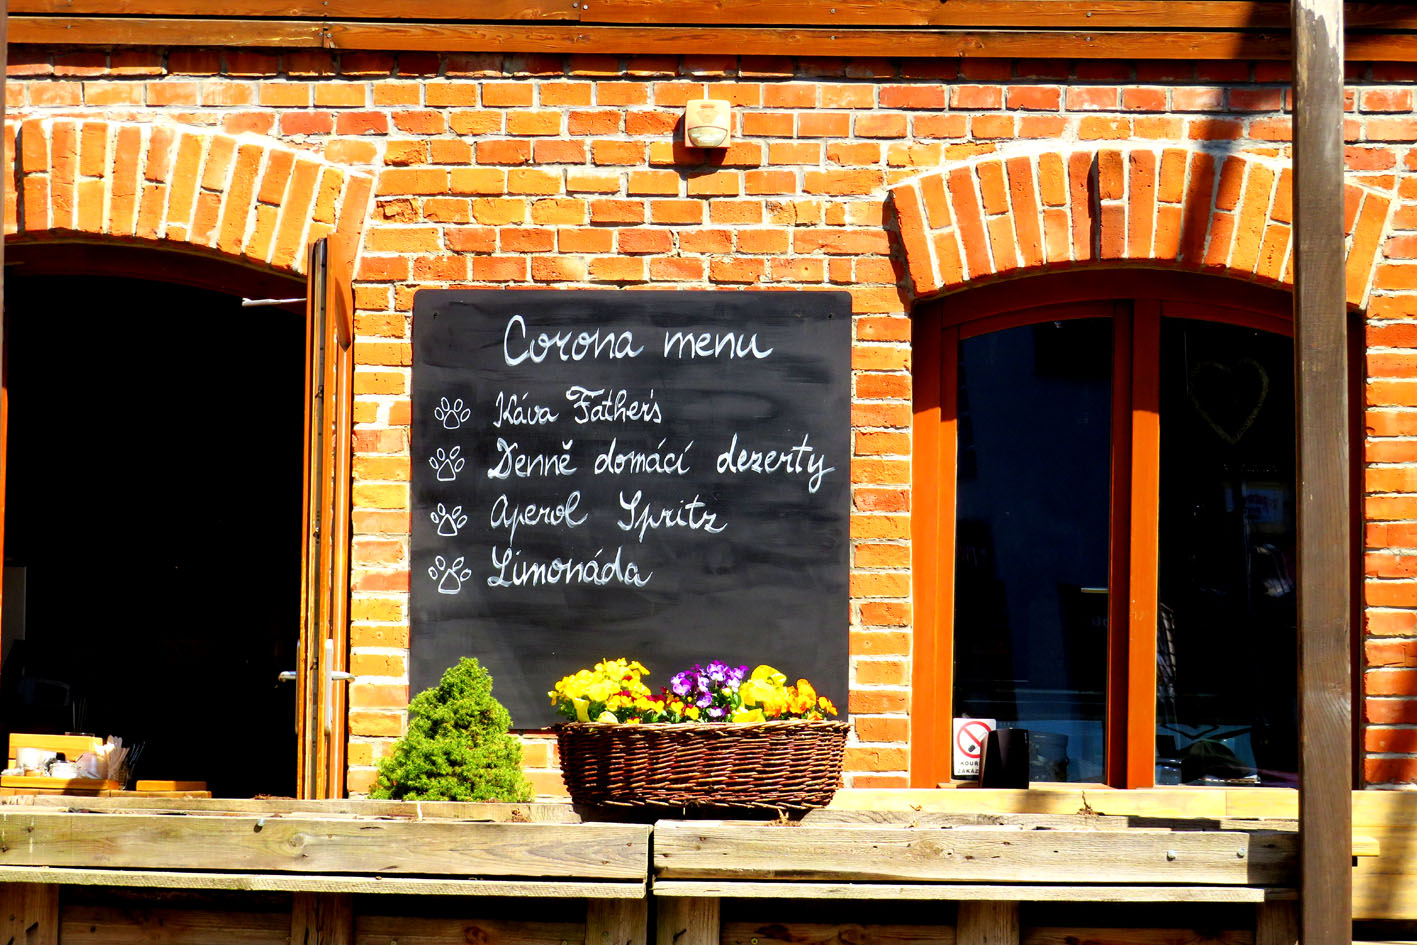 Corona menu
Káva Father's
Denně domácí dezerty
Aperol Spritz
Limonáda
KOUŘ
ZAKÁZ